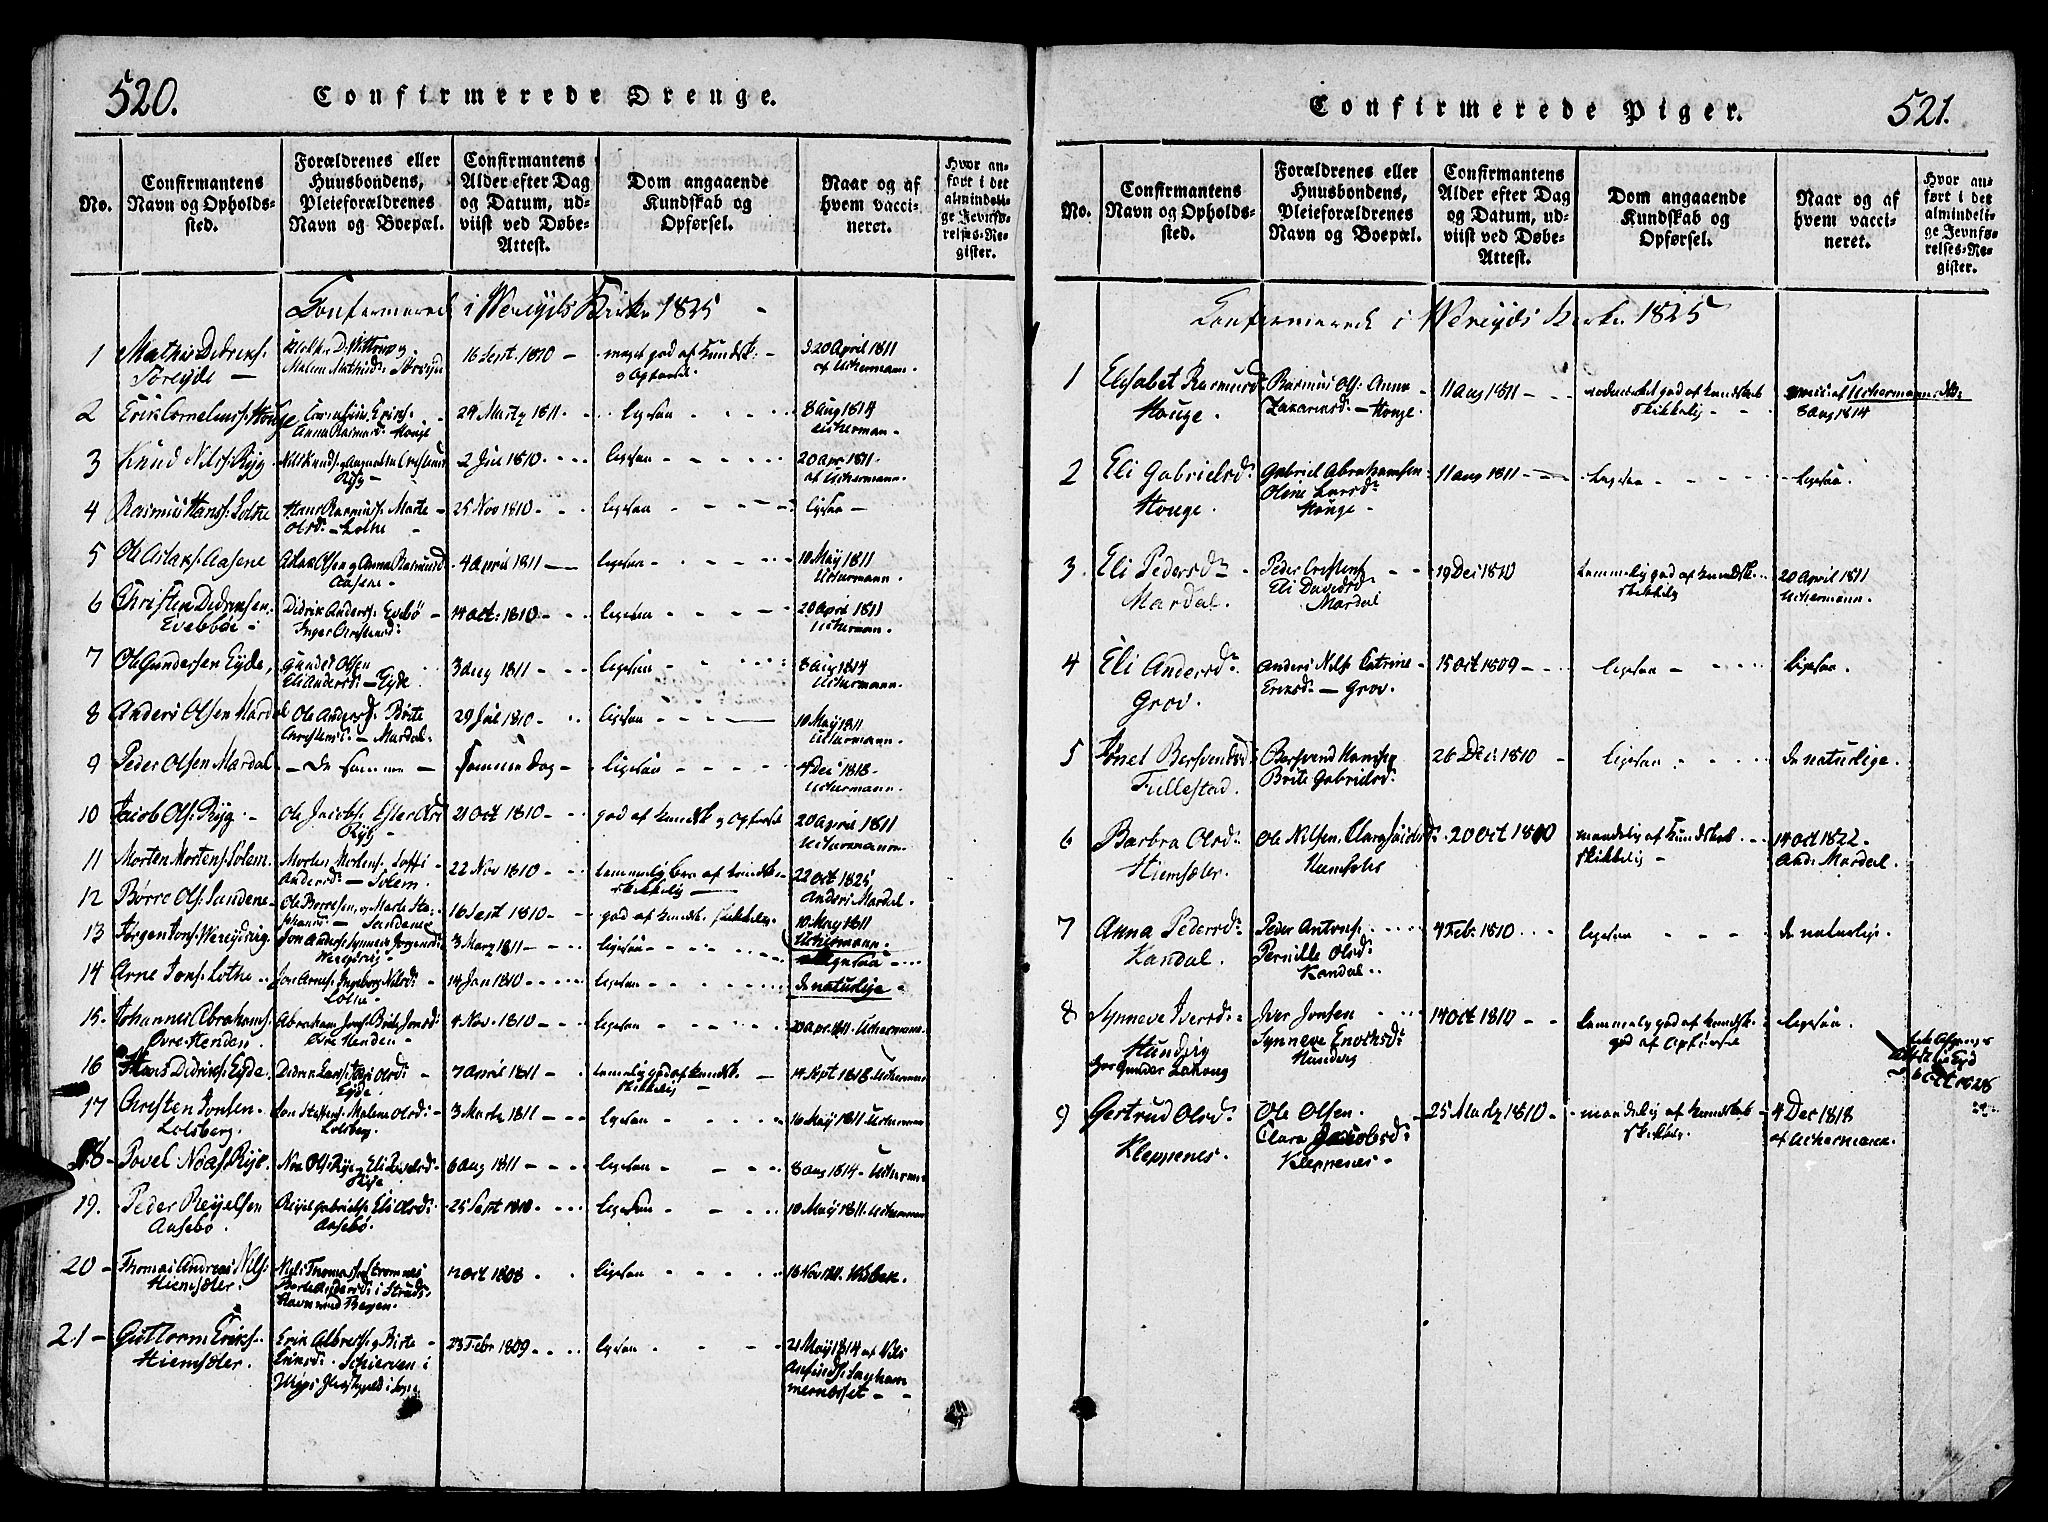 520.
Confirmerede Drenge.
No.
Confirmantens Navn og Opholds-sted.
Forældrenes eller Huusbondens, Pleieforældrenes Navn og Boepæl.
Confirmantens Alder efter Dag og Datum, ud-viist ved Døbe-Attest.
Dom angaaende Kundskab og Opførsel.
Naar og af hvem vacci-neret.
Hvor an-ført i det almindeli-ge Jevnfø-relses-Re-gister.
Confirmered i Wereyds Kirke 1825
1 Mathis Didriks: Søreyde 16 Sept. 1810 meget god af Kundsk: 20 April 1811
af Uchermann.
2 Erik Cornelius: Houge Cornelius Eriks: Anna Rasmusd: Houge 24 Martz 1811 ligesaa 8 Aug 1814
Uckerman
3 Knud Nils: Ryg 2 Jul 1810 ligesaa 20 Apr. 1811.
af Uchermann.
4 Rasmus Hans: Lothe Hans Rasmus: Marte Olsd: Lothe 25 Nov 1810 ligesaa ligesaa
5 Ole Aslaks: Aasene Aslak Olsen og Anna Rasmusd Aasene 4 April 1811 ligesaa 10 May 1811
Uchermann.
6 Christen Didriksen Evebbøe Didrik Anders: Evebø Inger Christensd: 14 Oct: 1810 ligesaa 20 April 1811
Uckerman.
7 Ole Gundersen Eyde, Gunder Olsen Eli Andersd: Eyde 3 Aug 1811 ligesaa 8 Aug 1814
Uckermann.
8 Anders Olsen Mardal Ole Anders: Brite Christensd: Mardal. 29 Jul 1810 ligesaa 10 May 1811
Uckermann.
9 Peder Olsen Mardal De samme Samme Dag ligesaa 4 Dec 1818
Uckermann.
10 Jacob Ols: Ryg Ole Jacobs: Ester Ryg 21 Oct 1810 god af Kundsk og Opførsel 20 April 1811
Uckermann
11 Morten Mortens: Solem. Morten Mortens: Andersd: Solem. 22 Nov 1810 skikkelig 22 Oct 1825
Anders Mardal
12 Børre Ols: Sandene Ole Børresen, og Marte Sandene 16 Sept 1810 god af Kundsk. skikkelig 10 May 1811
Uchermann
13 Jørgen Jons: Wereydvig Jon Anders: Synneve Jørgensd: Wereydvig 3 Marz 1811 ligesaa
14 Arne Jons: Lothe Jon Arnes: Ingeborg Nilsd: Lothe 14 Jan 1810 ligesaa de naturlige
15. Johannes Abrahams: Øvre Henden Abraham Jons: Brite Jonsd: Øvre Henden 4 Nov. 1810 ligesaa 20 Apr. 1811. Uchermann.
16 Didriks: Eyde. Eyde. 7 April 1811 temmelig god af Kundsk. skikkelig 14 Sept 1818 Uchermann
17 Christen Jonsen Lotsberg. Jon Steffens: Malene Olsd: Lotsberg 3 Martz 1811 ligesaa 16 May 1811 Uckermann
18 Povel Noas: Rye Noa Ols: Rye og Eli Povelsd: Rye 6 Aug 1811 ligesaa 8 Aug 1814 Uckerman
19. Peder Reyelsen Aasebø Reyel Gabriels: Eli Olsd: Aasebø. 25 Sept 1810 ligesaa 10 May 1811. Uckerman
20 Thomas Andreas Nils: Hiemsæter. Nils Thomas: Strømnes Berte Andersd: i Strids-havn ved Bergen. 12 Oct 1808 ligesaa
21 Guttorm Eriks: Hiemsæter. Erik Albrets: og Birte Eriksd: 23 Febr 1809 ligesaa 21 May 1814 af Nils
521.
Confirmerede Piger.
No.
Confirmantens Navn og Opholds-sted.
Forældrenes eller Huusbondens, Pleieforældrenes Navn og Boepæl.
Confirmantens Alder efter Dag og Datum, ud-viist ved Døbe-Attest.
Dom angaaende Kundskab og Opførsel.
Naar og af hvem vacci-neret.
Hvor an-ført i det almindeli-ge Jevnfø-relses-Re-gister.
Confirmered i Wereyds Kirke 1825
1 Elisabet Rasmusd: Houge. Rasmus Ols: Anna Zakariasd: Houge. 11 Aug 1811 god af Kundskab skikkelig af Uchermann
8 Aug 1814
2 Eli Gabrielsd: Houge. Gabriel Abrahamsen Oline Larsd: Houge 11 Aug 1811 ligesaa ligesaa.
3. Eli Pedersd: Mardal. Peder Christens: Eli Davidsd: Mardal 19 Dec 1810 temmelig god af Kundsk. skikkelig 20 April 1811
Uckermann.
4 Eli Andersd: Grov. Anders Nils: Catrine Eriksd: Grov. 15 Oct 1809 ligesaa ligesaa.
5 Jonet Bersvendsd: Fullestad. Bersvend Hans: og Brite Gabrielsd: 26 Dec: 1810 ligesaa. de naturlige.
6 Barbra Olsd: Hiemsæter. Ole Nilsen, Hiemsæter 20 Oct 1810 maadelig af Kundskab skikkelig 14 Oct 1822
And: Mardal.
7 Anna Pedersd: Kandal. Peder Antons: Pernille Olsd: Kandal. 4 Feb. 1810 ligesaa de naturlige.
8 Synneve Iversd: Hundvig Iver Jonsen Synneve Enochsd: Hundvig 14 Oct 1810 temmelig god af Kundsk. god af Opførsel ligesaa.
6 Oct 1828
9 Gertrud Olsd: Kleppenes. Ole Olsen. Clara Jacobsd: Kleppenes 25 Martz 1810 maadelig af Kundskab skikkelig. 4 Dec 1818
af Uchermann.